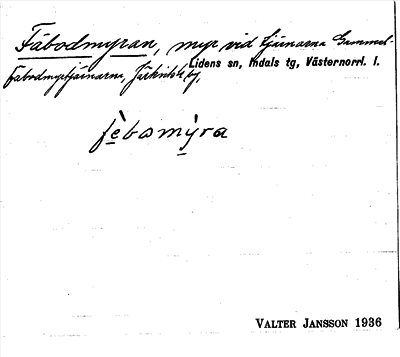 Fäbodmyran, myr vid tjärnarna Gammel-
fäbodmyrtjärnarna, by,
Lidens sn, Indals tg, Västernorrl. l.
fèbomỳra
VALTER JANSSON 1936